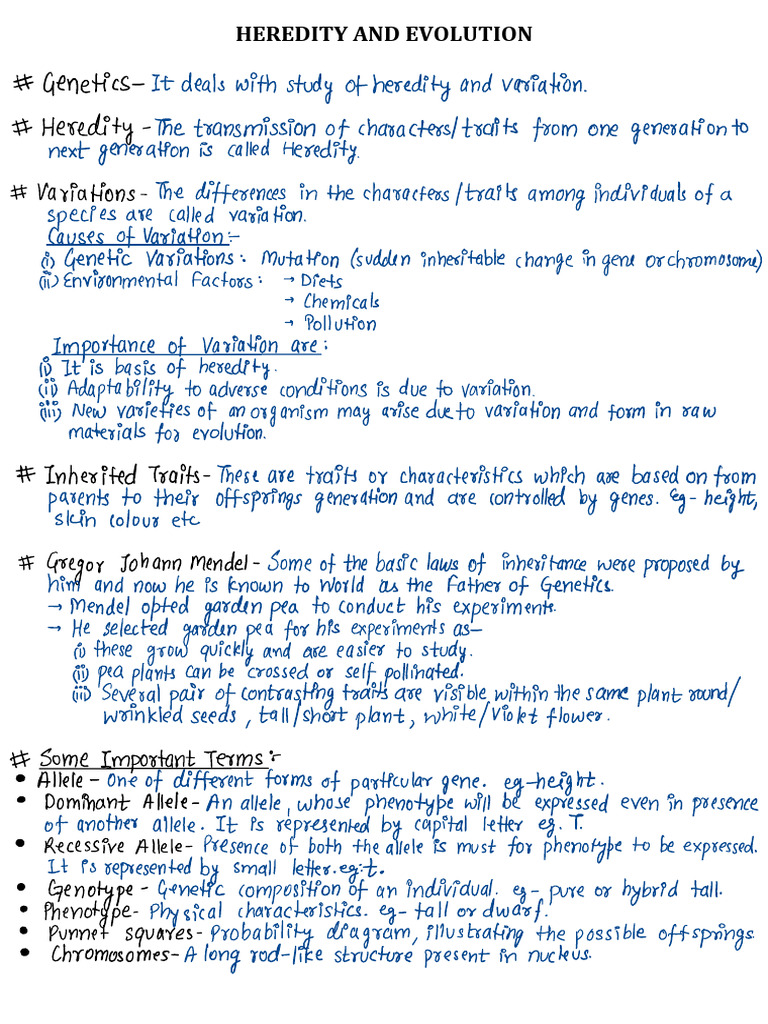 HEREDITY AND EVOLUTION
# Genetics- It deals with study of heredity and variation.
# Heredity - The transmission of characters/traits from one generation to
next generation is called Heredity.
# Variations - The differences in the characters/traits among individuals of a
species are called variation.
Causes of Variation:-
(i) Genetic Variations: Mutation (sudden inheritable change in gene or chromosome)
(ii) Environmental Factors: → Diets
→ Chemicals
→ Pollution
Importance of Variation are:
(i) It is basis of heredity.
(ii) Adaptability to adverse conditions is due to variation.
(iii) New varieties of an organism may arise due to variation and form in raw
materials for evolution.
# Inherited Traits- These are traits or characteristics which are based on from
parents to their offsprings generation and are controlled by genes. eg- height,
skin colour etc
# Gregor Johann Mendel - Some of the basic laws of inheritance were proposed by
him and now he is known to World as the Father of Genetics.
→ Mendel opted garden pea to conduct his experiments.
→ He selected garden pea for his experiments as-
(i) these grow quickly and are easier to study.
(ii) pea plants can be crossed or self pollinated.
(iii) Several pair of contrasting traits are visible within the same plant round/
wrinkled seeds, tall/short plant, white/Violet flower.
# Some Important Terms:-
• Allele - One of different forms of particular gene. eg-height.
• Dominant Allele - An allele, whose phenotype will be expressed even in presence
of another allele. It is represented by capital letter eg. T.
• Recessive Allele- Presence of both the allele is must for phenotype to be expressed.
It is represented by small letter.eg:t.
• Genotype - Genetic composition of an individual. eg- pure or hybrid tall.
• Phenotype- Physical characteristics. eg- tall or dwarf.
• Punnet squares- Probability diagram, illustrating the possible offsprings.
• Chromosomes- A long rod-like structure present in nucleus.